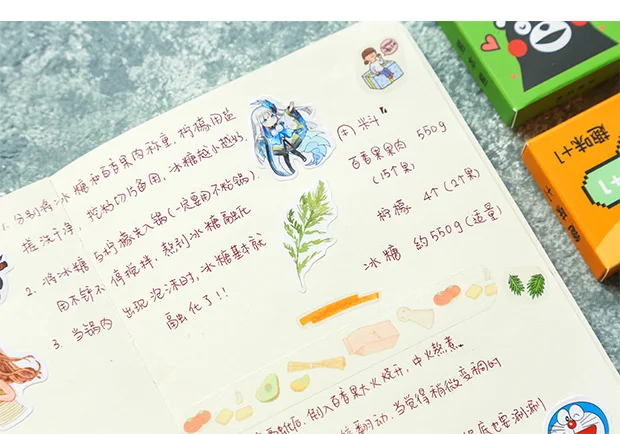 1. 分别将冰糖和百香果肉称重，柠檬用盐
搓洗干净，挖籽切片备用，冰糖越小越好
2. 将冰糖与柠檬先入锅（一定要用不粘锅）
用不锈不停搅拌，熬到冰糖融化
3. 当锅内出现泡沫时，冰糖基本就
融化了！！
用料
百香果果肉 550g
（15个果）
柠檬 4个（2个果）
冰糖 约550g（适量）
倒入百香果大火烧开，中火熬煮。
翻动，当觉得稍微变稠的
底也要涮涮
趣味+1
+1